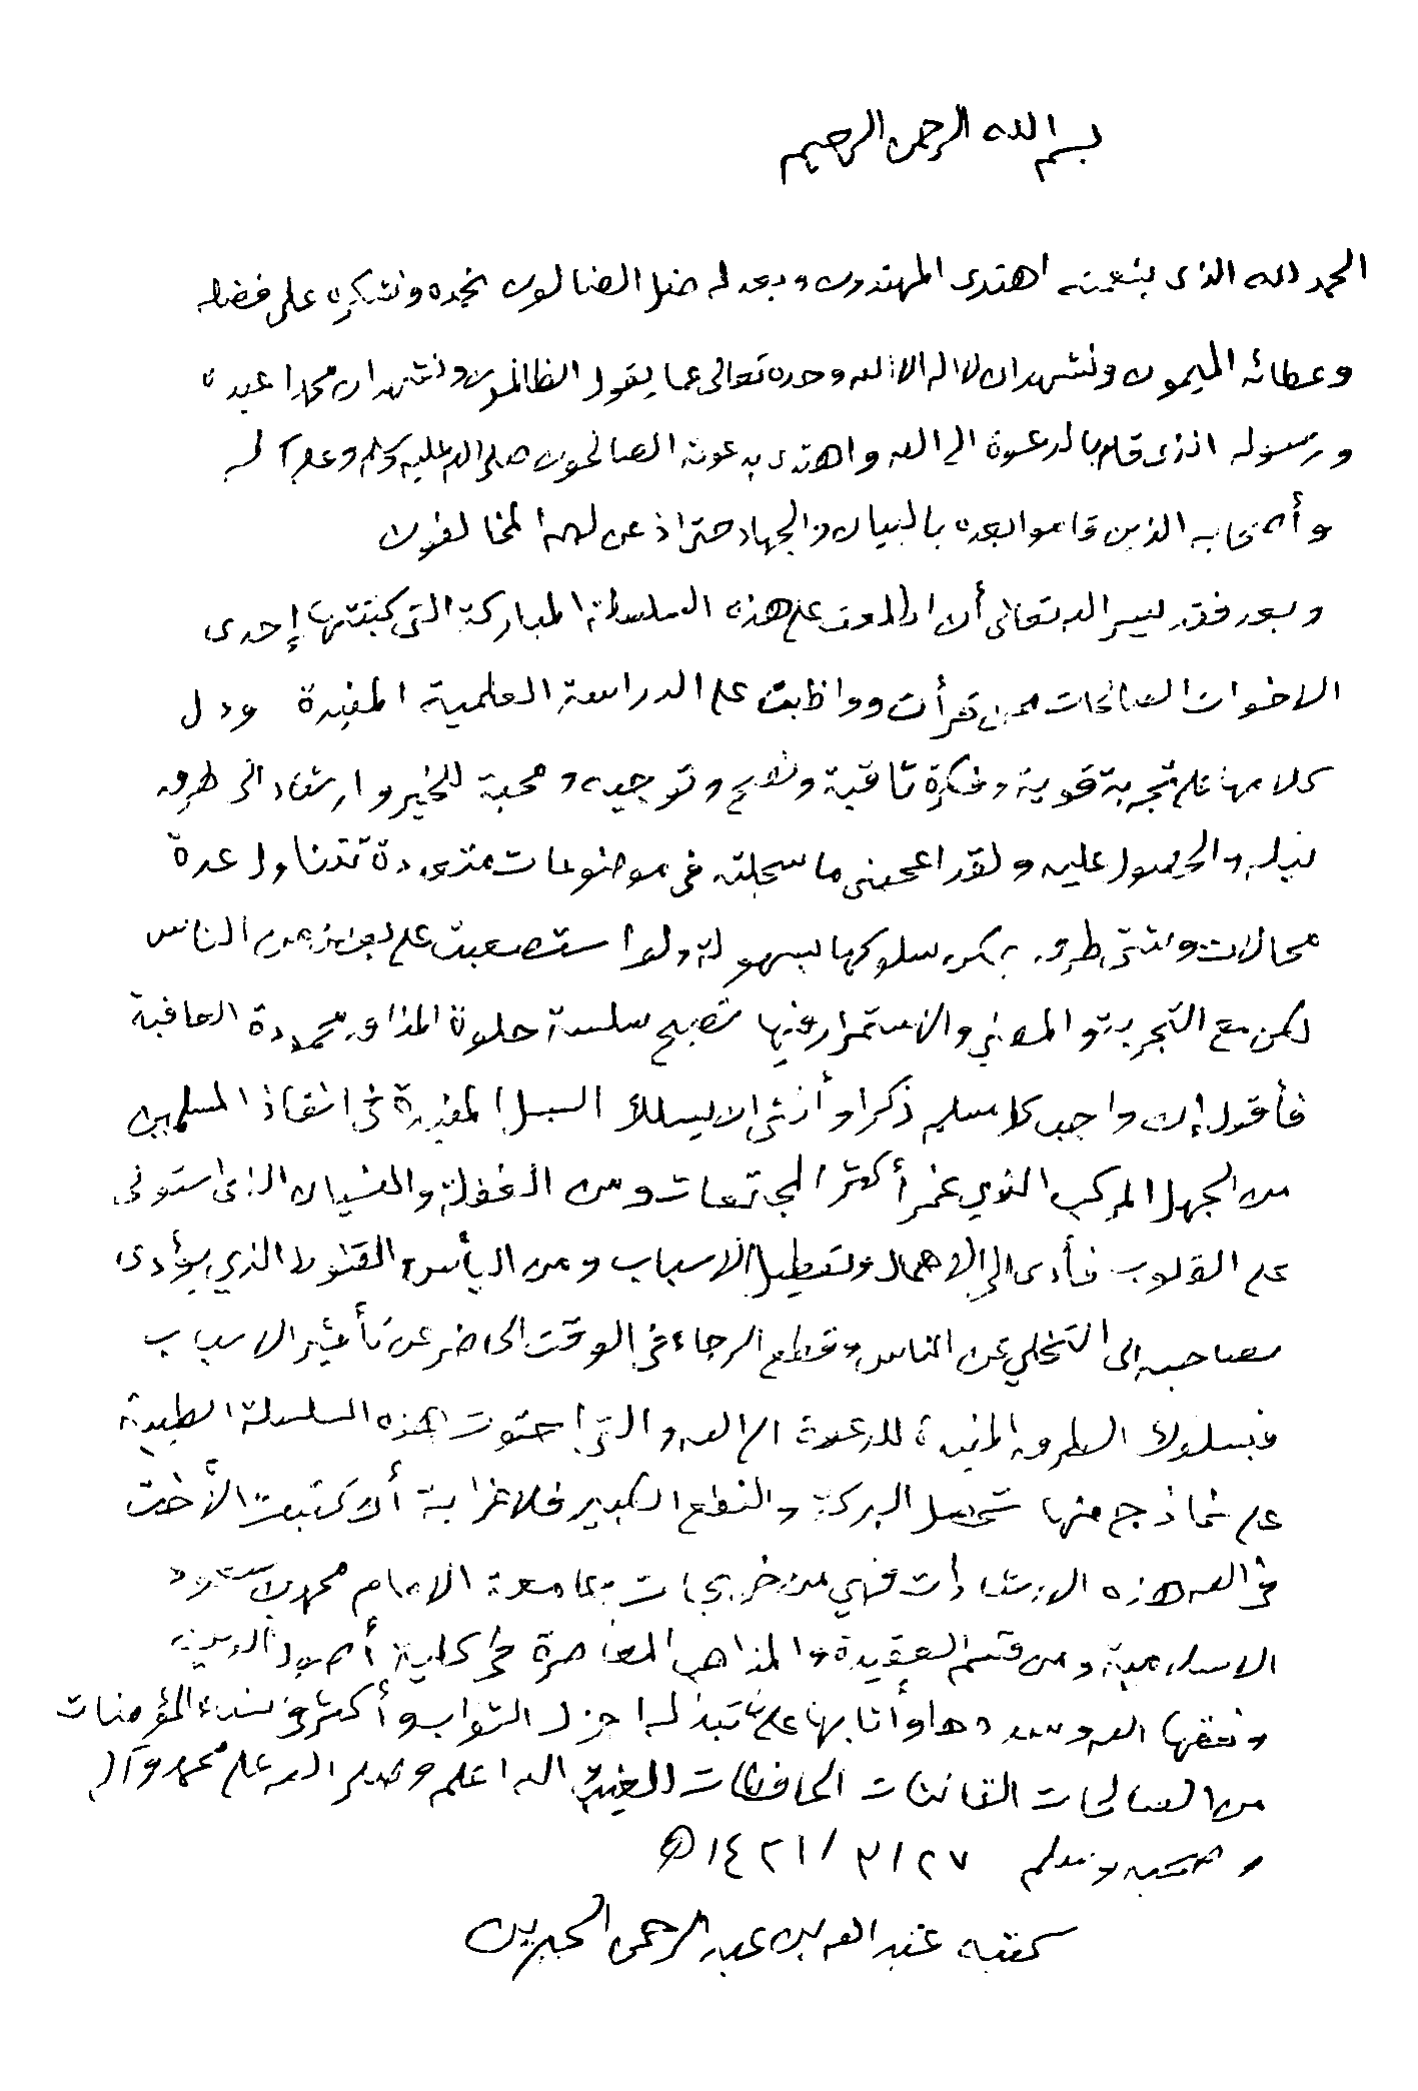 بسم الله الرحمن الرحيم
الحمد لله الذى بنعمته اهتدى المهتدون وبعدله ضل الضالون نحمده ونشكره على فضله
وعطائه الميمون ونشهد ان لا اله الا الله وحده تعالى عما يقول الظالمون ونشهد ان محمدا عبده
ورسوله الذى قام بالدعوة الى الله واهتدى بدعوته الصالحون صلى الله عليه وسلم وعلى آله
وأصحابه الذين قاموا بعده بالبيان والجهاد حتى اذعن لهم المخالفون
وبعد فقد يسر الله تعالى أن اطلعت على هذه السلسلة المباركة التى كتبتها إحدى
الاخوات الصالحات ممن قرأت وواظبت على الدراسة العلمية المفيدة ودل
كلامها على تجربة قوية وفكرة ثاقبة ونصح وتوجيه ومحبة للخير وارشاد الى طرق
نيله والحصول عليه ولقد اعجبنى ما سجلته فى موضوعات متعددة تتناول عدة
مجالات وشتى طرق يمكن سلوكها بسهولة ولو استصعبت على بعض من الناس
لكن مع التجربة والمضي والاستمرار فيها تصبح سلسة حلوة المذاق محمودة العاقبة
فأقول إن واجب كل مسلم ذكرا وأنثى ان يسلك السبل المفيدة فى انقاذ المسلمين
من الجهل المركب الذي غمر أكثر المجتمعات ومن الغفلة والنسيان الذى استولى
على القلوب فأدى الى الاهمال وتعطيل الاسباب ومن اليأس والقنوط الذي يؤدى
بصاحبه الى التخلي عن الناس وقطع الرجاء فى الوقت الحاضر عن تأثير الاسباب
فبسلوك الطرق المفيدة للدعوة الى الله والتى احتوت هذه السلسلة الطيبة
على نماذج منها تحصل البركة والنفع الكبير فلا غرابة أن كتبت الأخت
فى الله هذه الارشادات فهي من خريجات جامعة الامام محمد بن سعود
الاسلامية ومن قسم العقيدة والمذاهب المعاصرة فى كلية أصول الدين
وفقها الله وسددها وأثابها على ما تبذله اجزل الثواب وأكثر فى نساء المؤمنات
من الصالحات القانتات الحافظات للغيب والله اعلم وصلى الله على محمد وآله
وصحبه وسلم ١٤٢١/٣/٢٧ هـ
كتبه عبد الله بن عبد الرحمن الجبرين